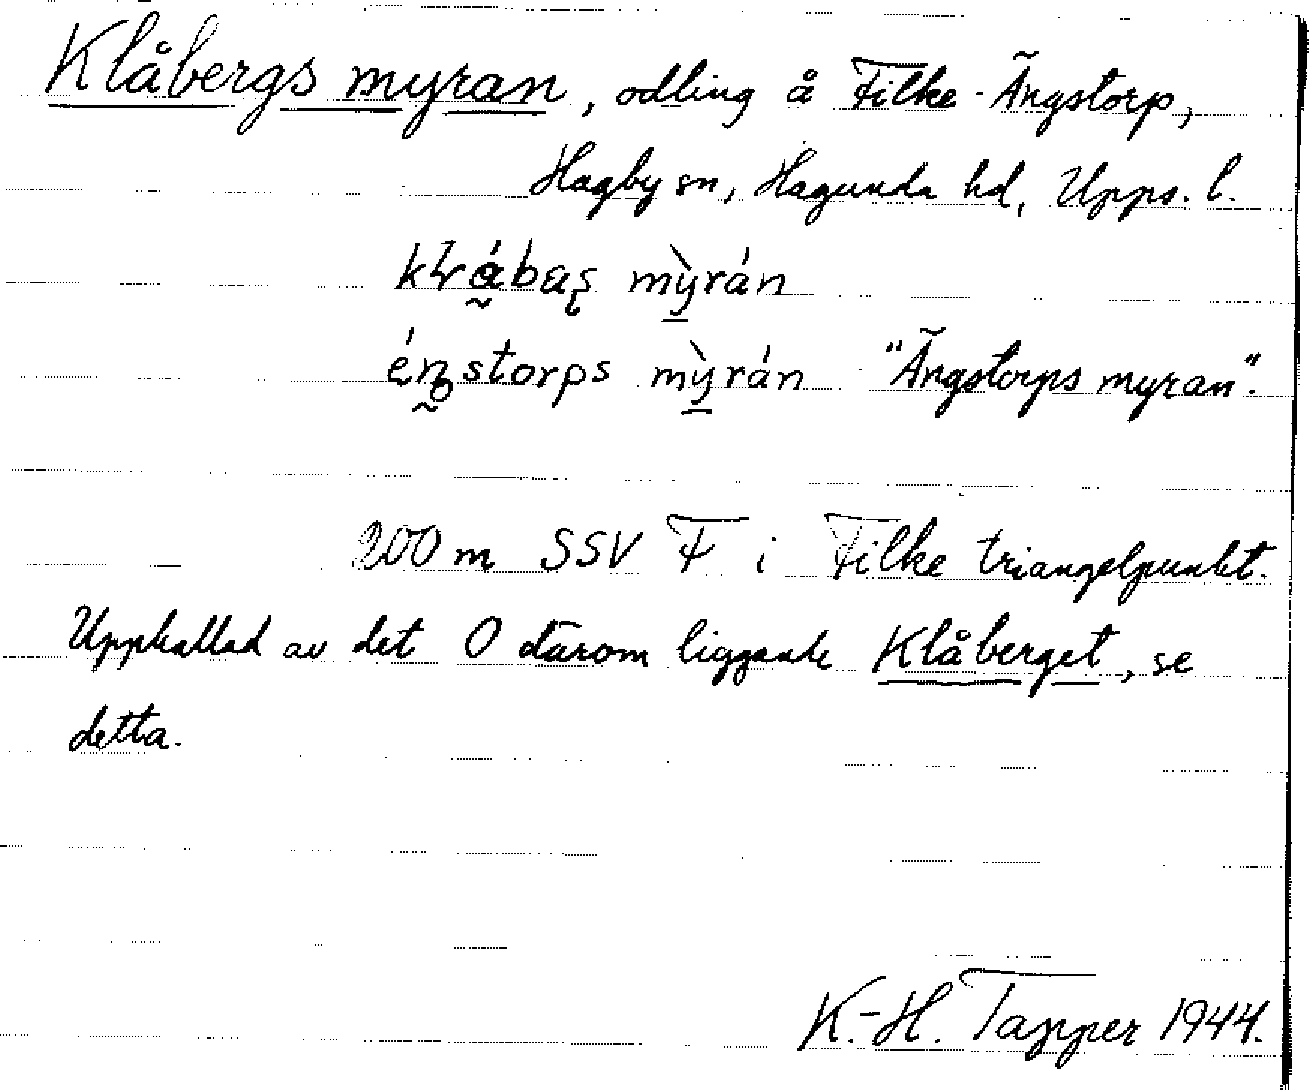 Klåbergs myran, odling å Filke-Ängstorp,
Hagby sn, Hagunda hd, Upps. l.
mỳrán
mỳrán "Ängstorps myran".
200 m SSV F i Filke triangelpunkt.
Uppkallad av det O därom liggande Klåberget, se
detta.
K.-H. Tapper 1944.